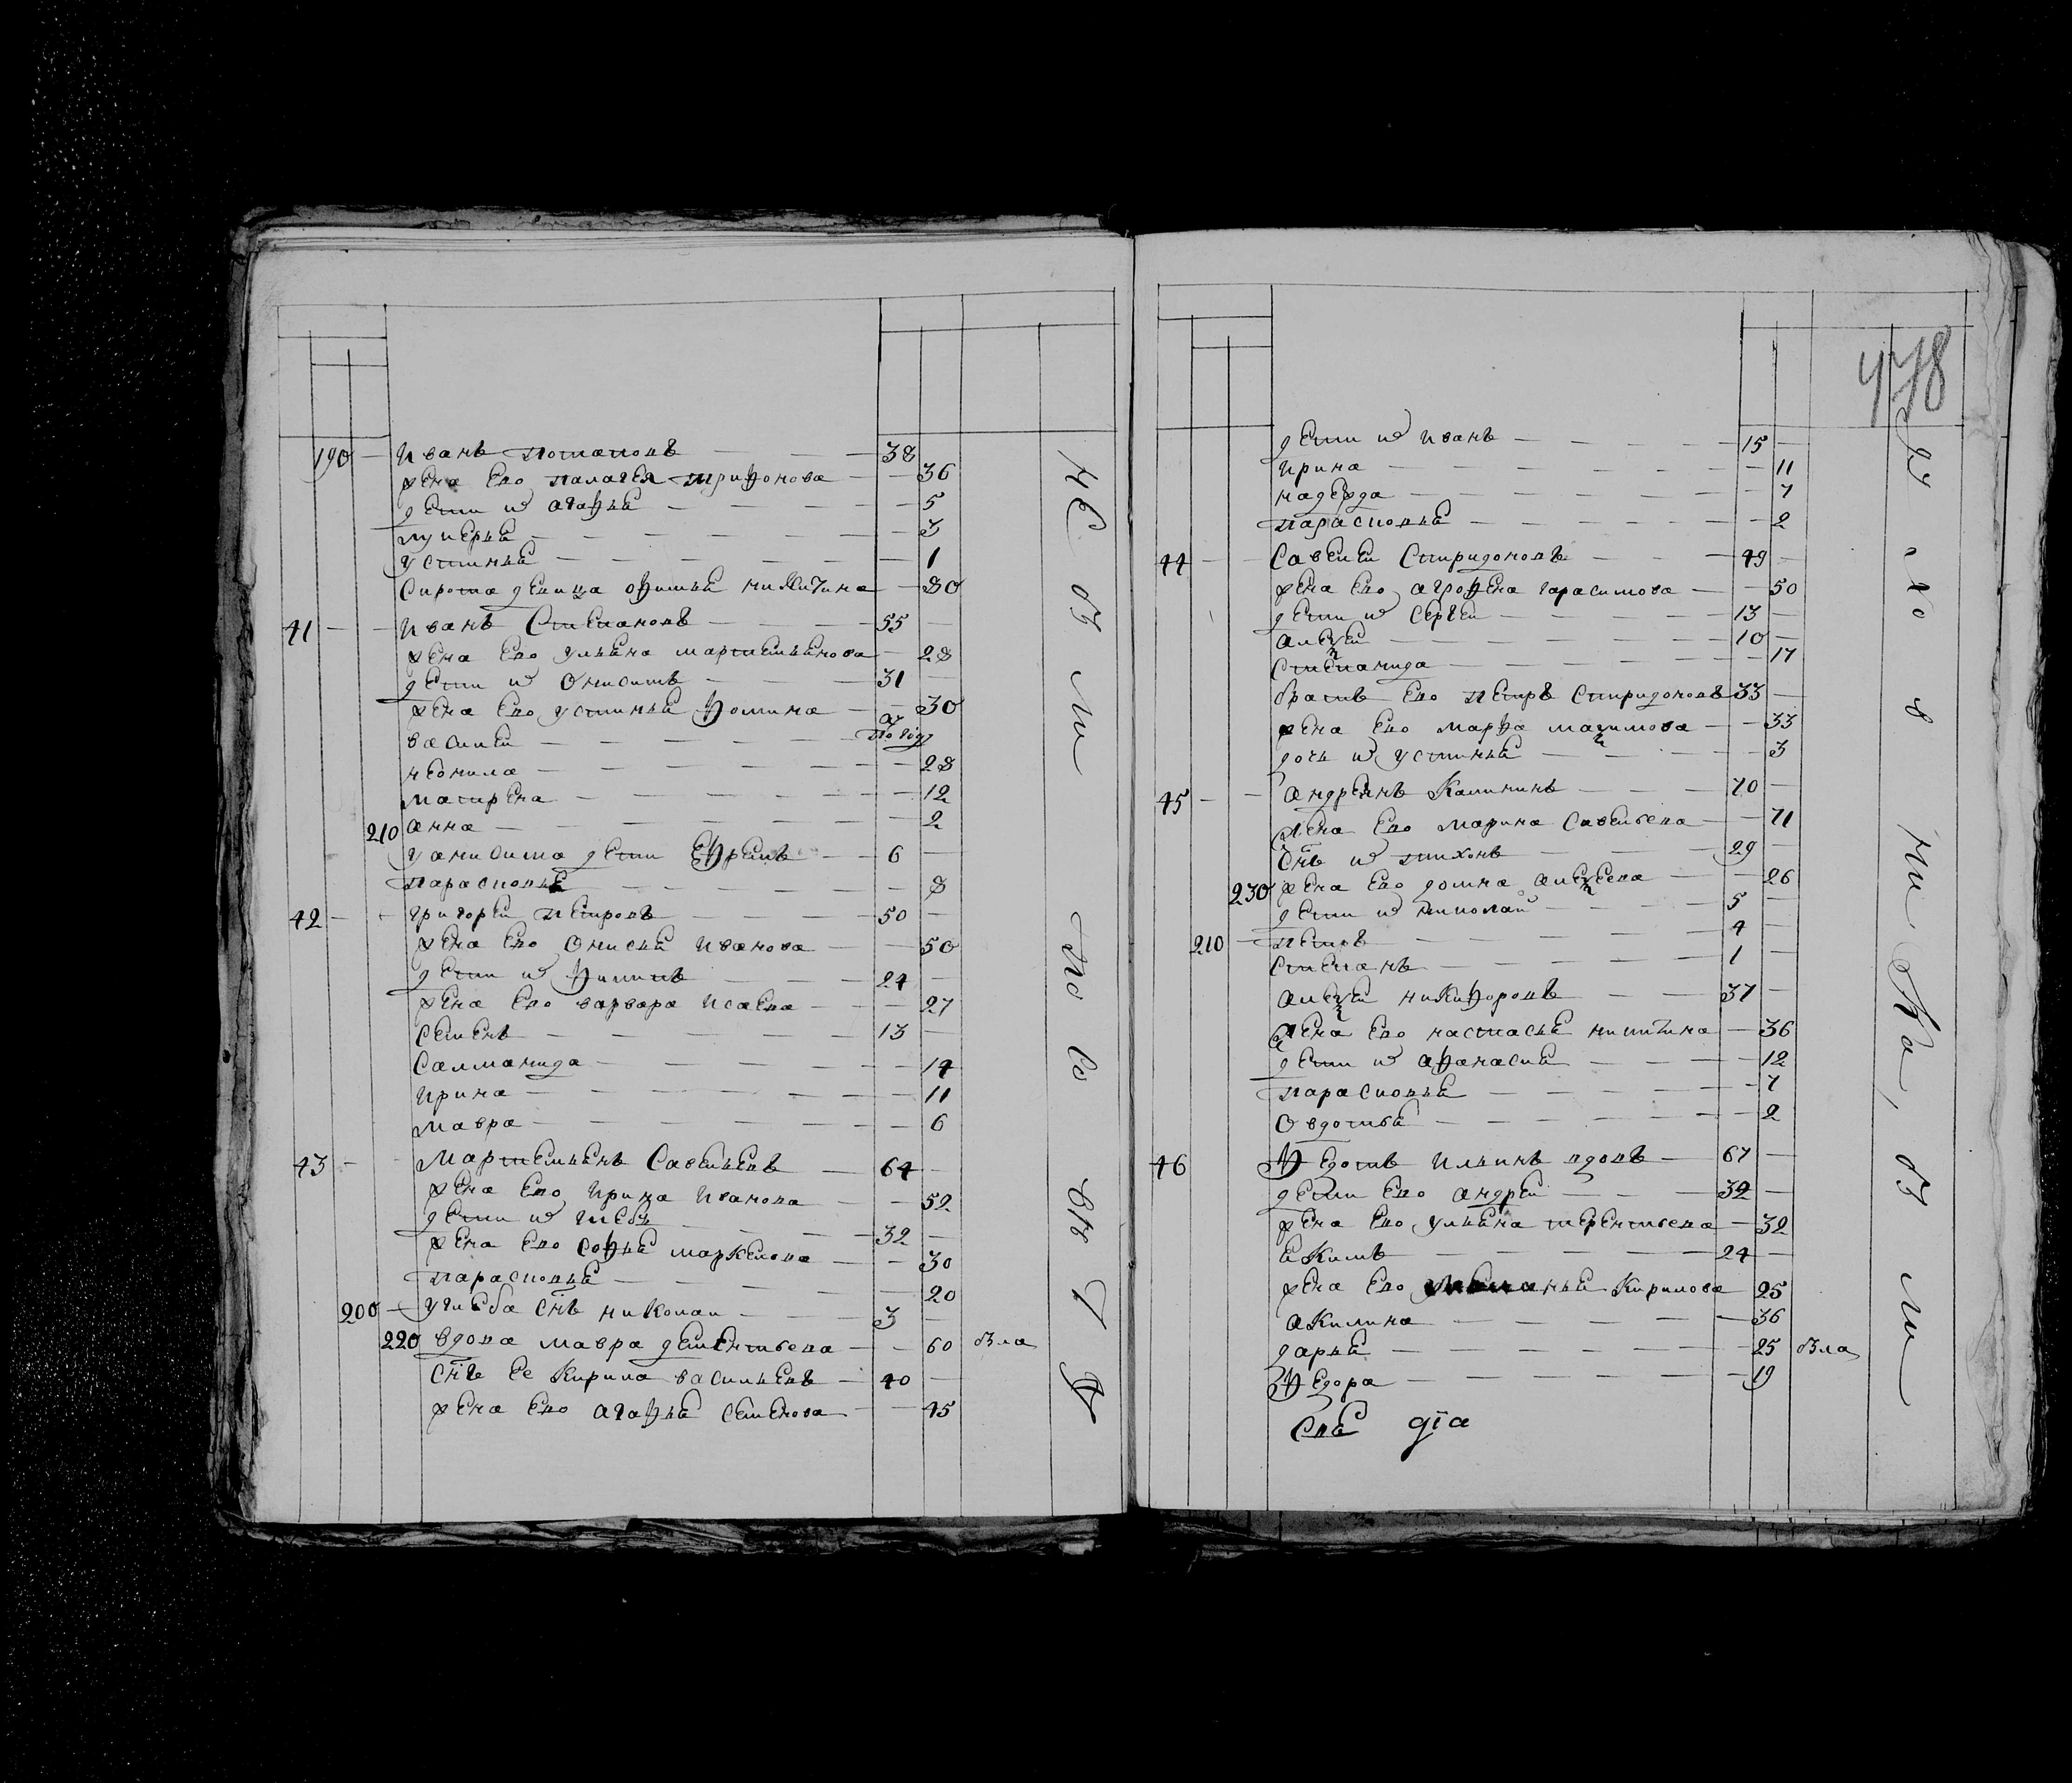 190 Иванъ Потаповъ 38
жена Ево палагея трифонова 36
дети их агафья 5
лукерья 3
устинья 1
Сирота девица офимья никитина 80
41 Иванъ Степановъ 55
жена Ево ульяна мартемьянова 28
дети их Онисимъ 31
жена Ево устинья фомина 30
василеи по году
неонила 28
матрена 12
210 анна 2
у анисима дети Ефремъ 6
парасковья 8
42 григореи Петровъ 50
жена Ево Онисья Иванова 50
дети их филипъ 24
жена Ево варвара Исаева 27
Семенъ 13
Саламанида 14
ирина 11
мавра 6
43 Мартемьянъ Савельевъ 64
жена Ево Ирина Иванова 52
дети их глебъ 32
жена Ево Софья маркелова 30
парасковья 20
200 у глеба снъ николаи 3
220 вдова мавра дементьева 60 взла
снъ Ее Кирила васильевъ 40
жена Ево агафья Семенова 45
478
дети их Иванъ 15
ирина 11
надежда 7
парасковья 2
44 Савелеи Спиридоновъ 49
жена Ево агрофена гарасимова 50
дети их Сергеи 13
алеѯеи 10
Степанида 17
братъ Ево петръ Спиридоновъ 33
жена Ево марфа маѯимова 33
дочь их устинья 3
45 андреянъ Калининъ 70
жена Ево марина Савельева 71
снъ их тихонъ 29
230 жена Ево домна алеѯеева 26
дети их николаи 5
210 петръ 4
Степанъ 1
алеѯеи никифоровъ 37
жена Ево настасья никитина 36
дети их афанасия 12
парасковья 7
Овдотья 2
46 Федотъ Ильинъ вдовъ 67
дети Ево андреи 32
жена Ево ульяна терентьева 32
Екимъ 24
жена Ево Кирилова 25
акилина 36
дарья 25 взла
Федора 19